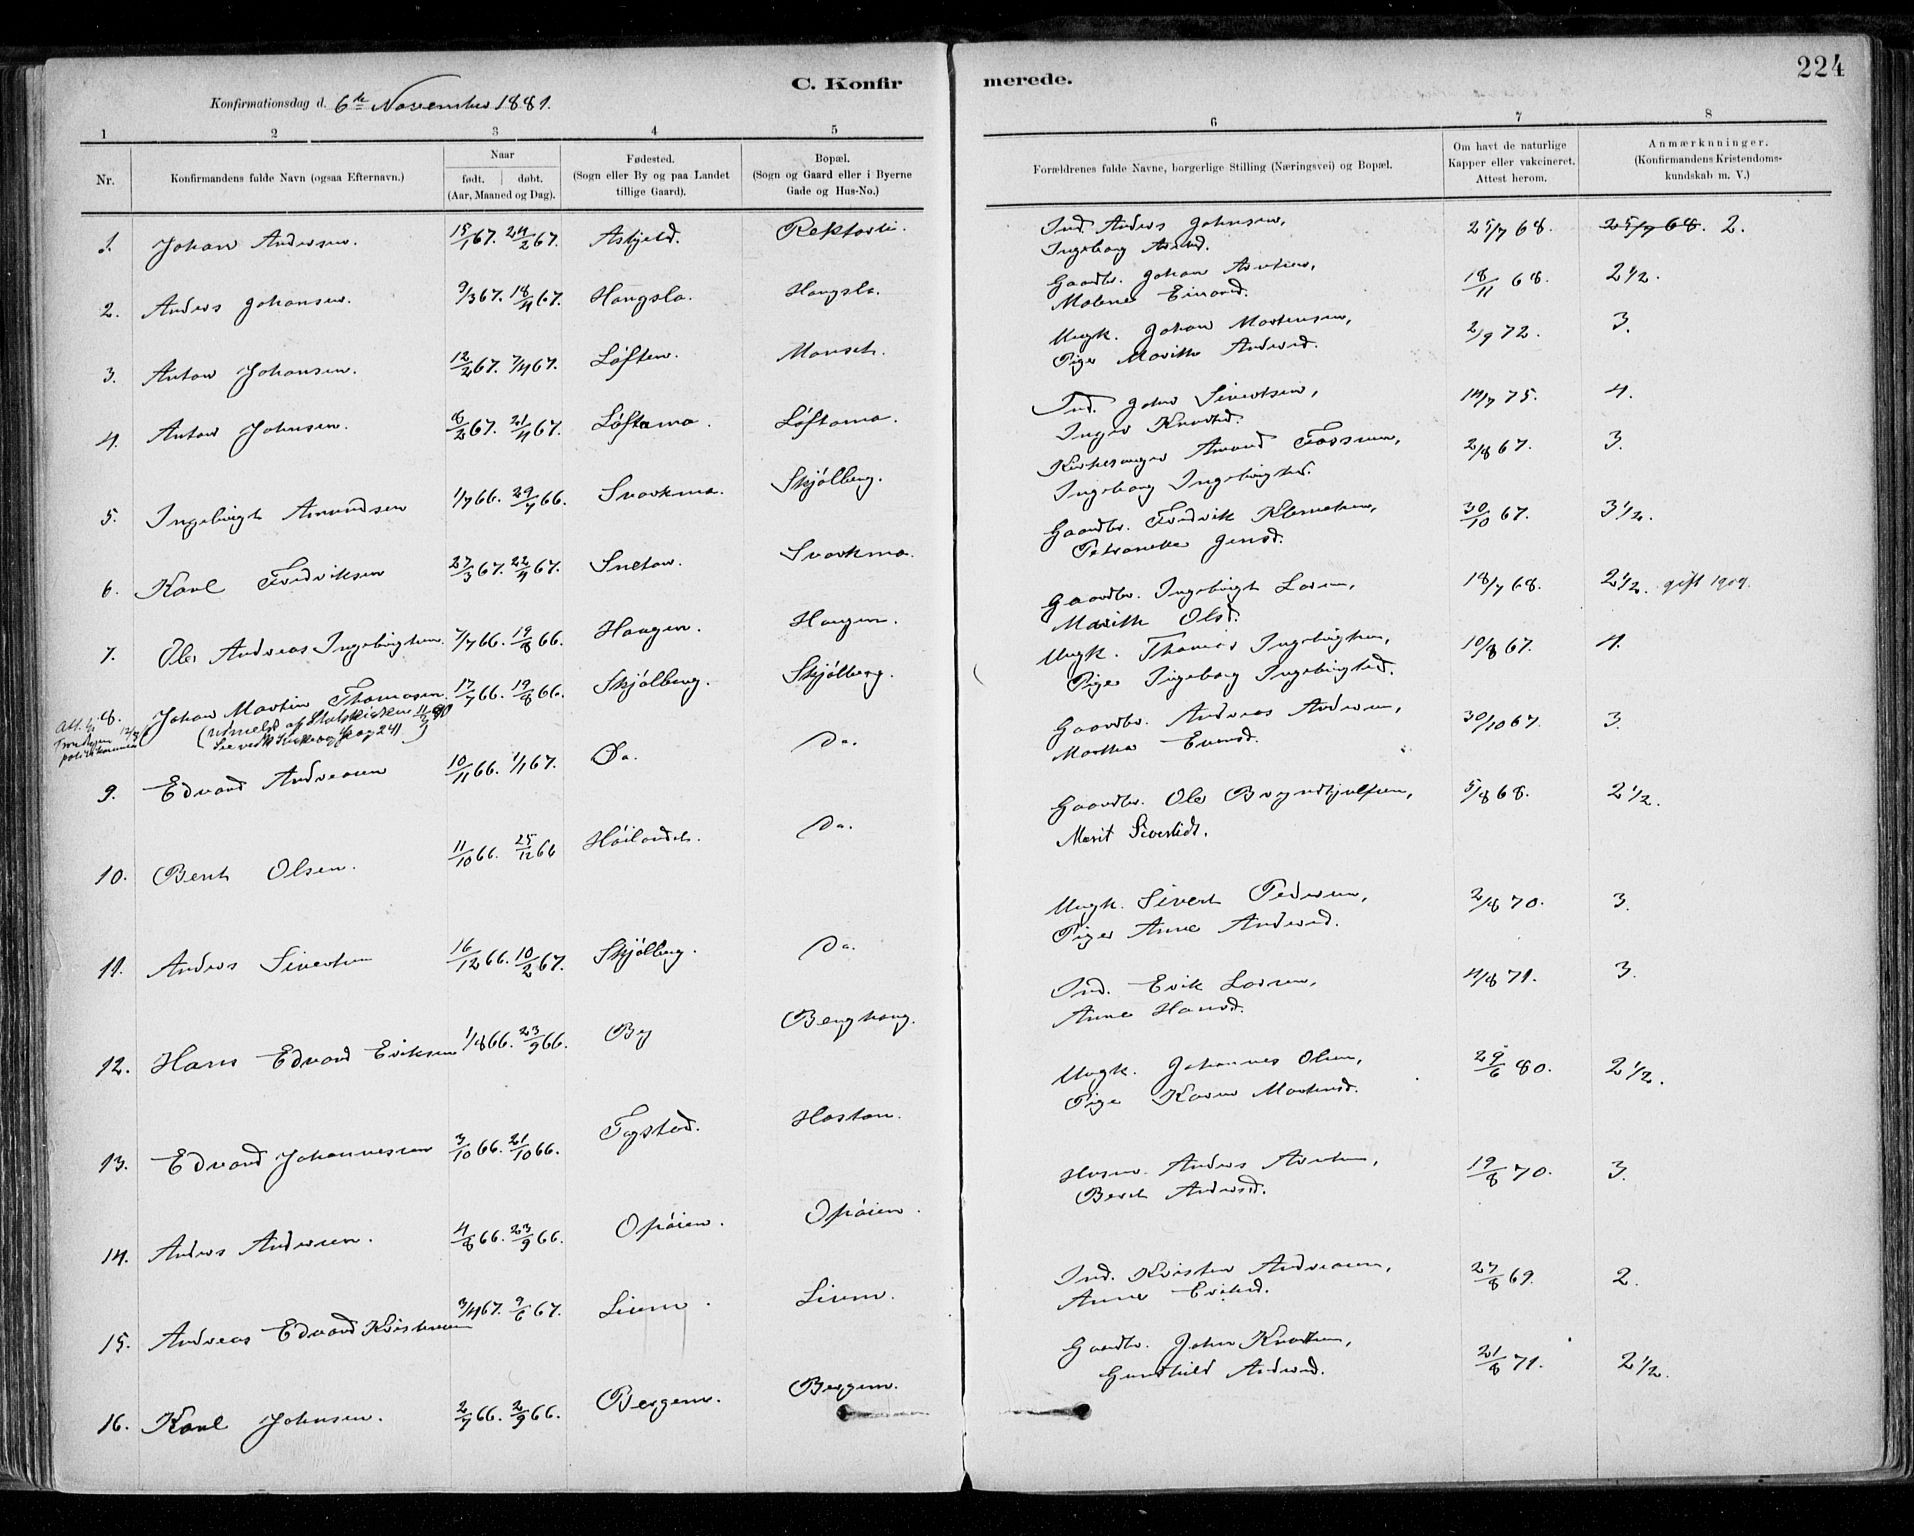 C. Konfirmerede.
224
Konfirmationsdag d. 6te November 1881.
1 2 3 4 5 6 7 8
Nr.
Konfirmandens fulde Navn (ogsaa Efternavn.)
Naar
født. døbt.
(Aar, Maaned og Dag).
Fødested.
(Sogn eller By og paa Landet
tillige Gaard).
Bopæl.
(Sogn og Gaard eller i Byerne
Gade og Hus-No.)
Forældrenes fulde Navne, borgerlige Stilling (Næringsvei) og Bopæl.
Om havt de naturlige
Kapper eller vakcineret.
Attest herom.
Anmærkninger.
(Konfirmandens Kristendoms-
kundskab m. V.)
1. Johan Andersen. 15/1 67. 24/2 67. Asbjeld. Ind. Anders Johnsen, 25/7 68. 25/7 68. 2.
Ingeborg
2. Anders Johansen. 9/3 67. 18/4 67. Hongslo. Hongslo. Gaardbr. Johan 18/11 68. 2 1/2.
Malene
3. Anton Johansen. 12/2 67. 7/4 67. Løften. Ungk. Johan Mortensen, 2/9 72. 3.
Pige Marith Andersd.
4. Anton Johnsen. 8/2 67. 21/4 67. Løftamo. Løftamo. Ind. John Sivertsen, 14/7 75. 4.
Inger Knudsd.
5. Ingebrigt Amundsen 1/7 66. 29/7 66. Svorkmo. Skjølberg. Kirkesanger Amund Fossum, 2/8 67. 3.
Ingeborg Ingebrigtsd.
6. Karl Fredriksen 27/3 67. 22/4 67. Svorkmo. Gaardbr. Fredrik Klemetsen, 30/10 67. 3 1/2.
Petronelle Jensd.
7. Ole Andreas Ingebrigtsen. 7/7 66. 19/8 66. Haagen. Haugen. Gaardbr. Ingebrigt Larsen, 18/7 68. 2 1/2. gift 1909.
Marith Olsd.
8. Johan Martin Thomasen 17/7 66. 19/8 66. Skjølberg. Skjølberg. Ungk. Thomas Ingebrigtsen, 10/8 67. 4.
(Udmeldt af Statskirken
Pige Ingeborg Ingebrigtsd.
9. Edvard Andreasen 10/11 66. 1/1 67. Do. Do. Gaardbr. Andreas Andersen, 30/10 67. 3.
Martha Evensd.
10. Berit Olsen. 11/10 66. 25/12 66 Høilandet. Do. Gaardbr. Ole Bryndhjulfsen, 5/8 68. 2 1/2.
Marit Sivertsdt.
11. Anders Sivertsen 16/12 66. 10/2 67. Skjølberg. Do. Ungk. Sivert Pedersen, 2/8 70. 3.
Pige Anne Andersd.
12. Hans Edvard Eriksen 1/8 66. 23/9 66. By Berghaug. Ind. Erik Larsen, 4/8 71. 3.
Anne Hansd.
13. Edvard Johannessen 3/10 66. 21/10 66. Fogstad. Hoston. Ungk. Johannes Olsen, 29/6 80. 2 1/2.
Pige Karen Mortensd.
14. Anders Andersen. 4/8 66. 23/9 66. Opøien. Opøien. Husm. Anders 19/8 70. 3.
Berit Andersd.
15. Andreas Edvard Kristensen 3/4 67. 9/6 67. Lium. Lium. Ind. Kristen Andreasen, 27/8 69. 2.
Anne Eriksd.
16. Karl Johnsen. 2/7 66. 2/9 66. Bergem. Bergem. Gaardbr. John Knudsen, 21/8 71. 2 1/2.
Gunhild Andersd.